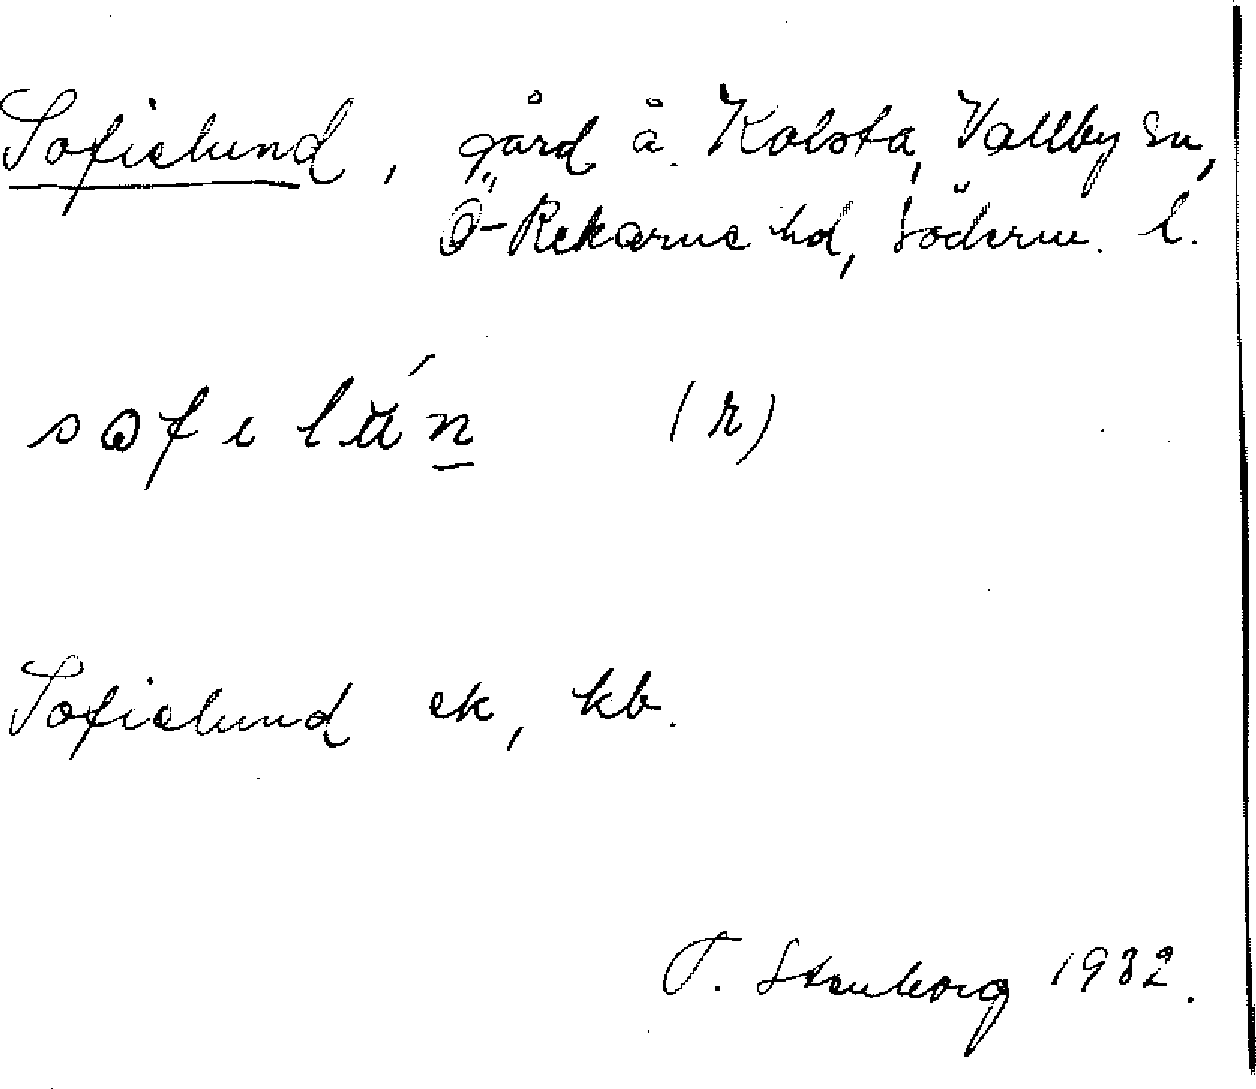 Sofielund, gård å. Kolsta, Vallby sn,
Ö-Rekarne hd, Söderm. l.
(r)
Sofielund ek, kb.
T. Stenborg 1932.